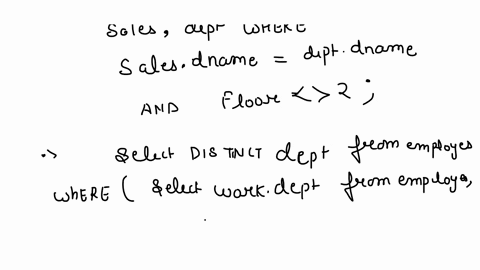 Sales, dept WHERE
Sales.dname = dept.dname
AND Floore <> 2 ;
Select DISTINCT dept from employes
WHERE ( Select work.dept from employe,